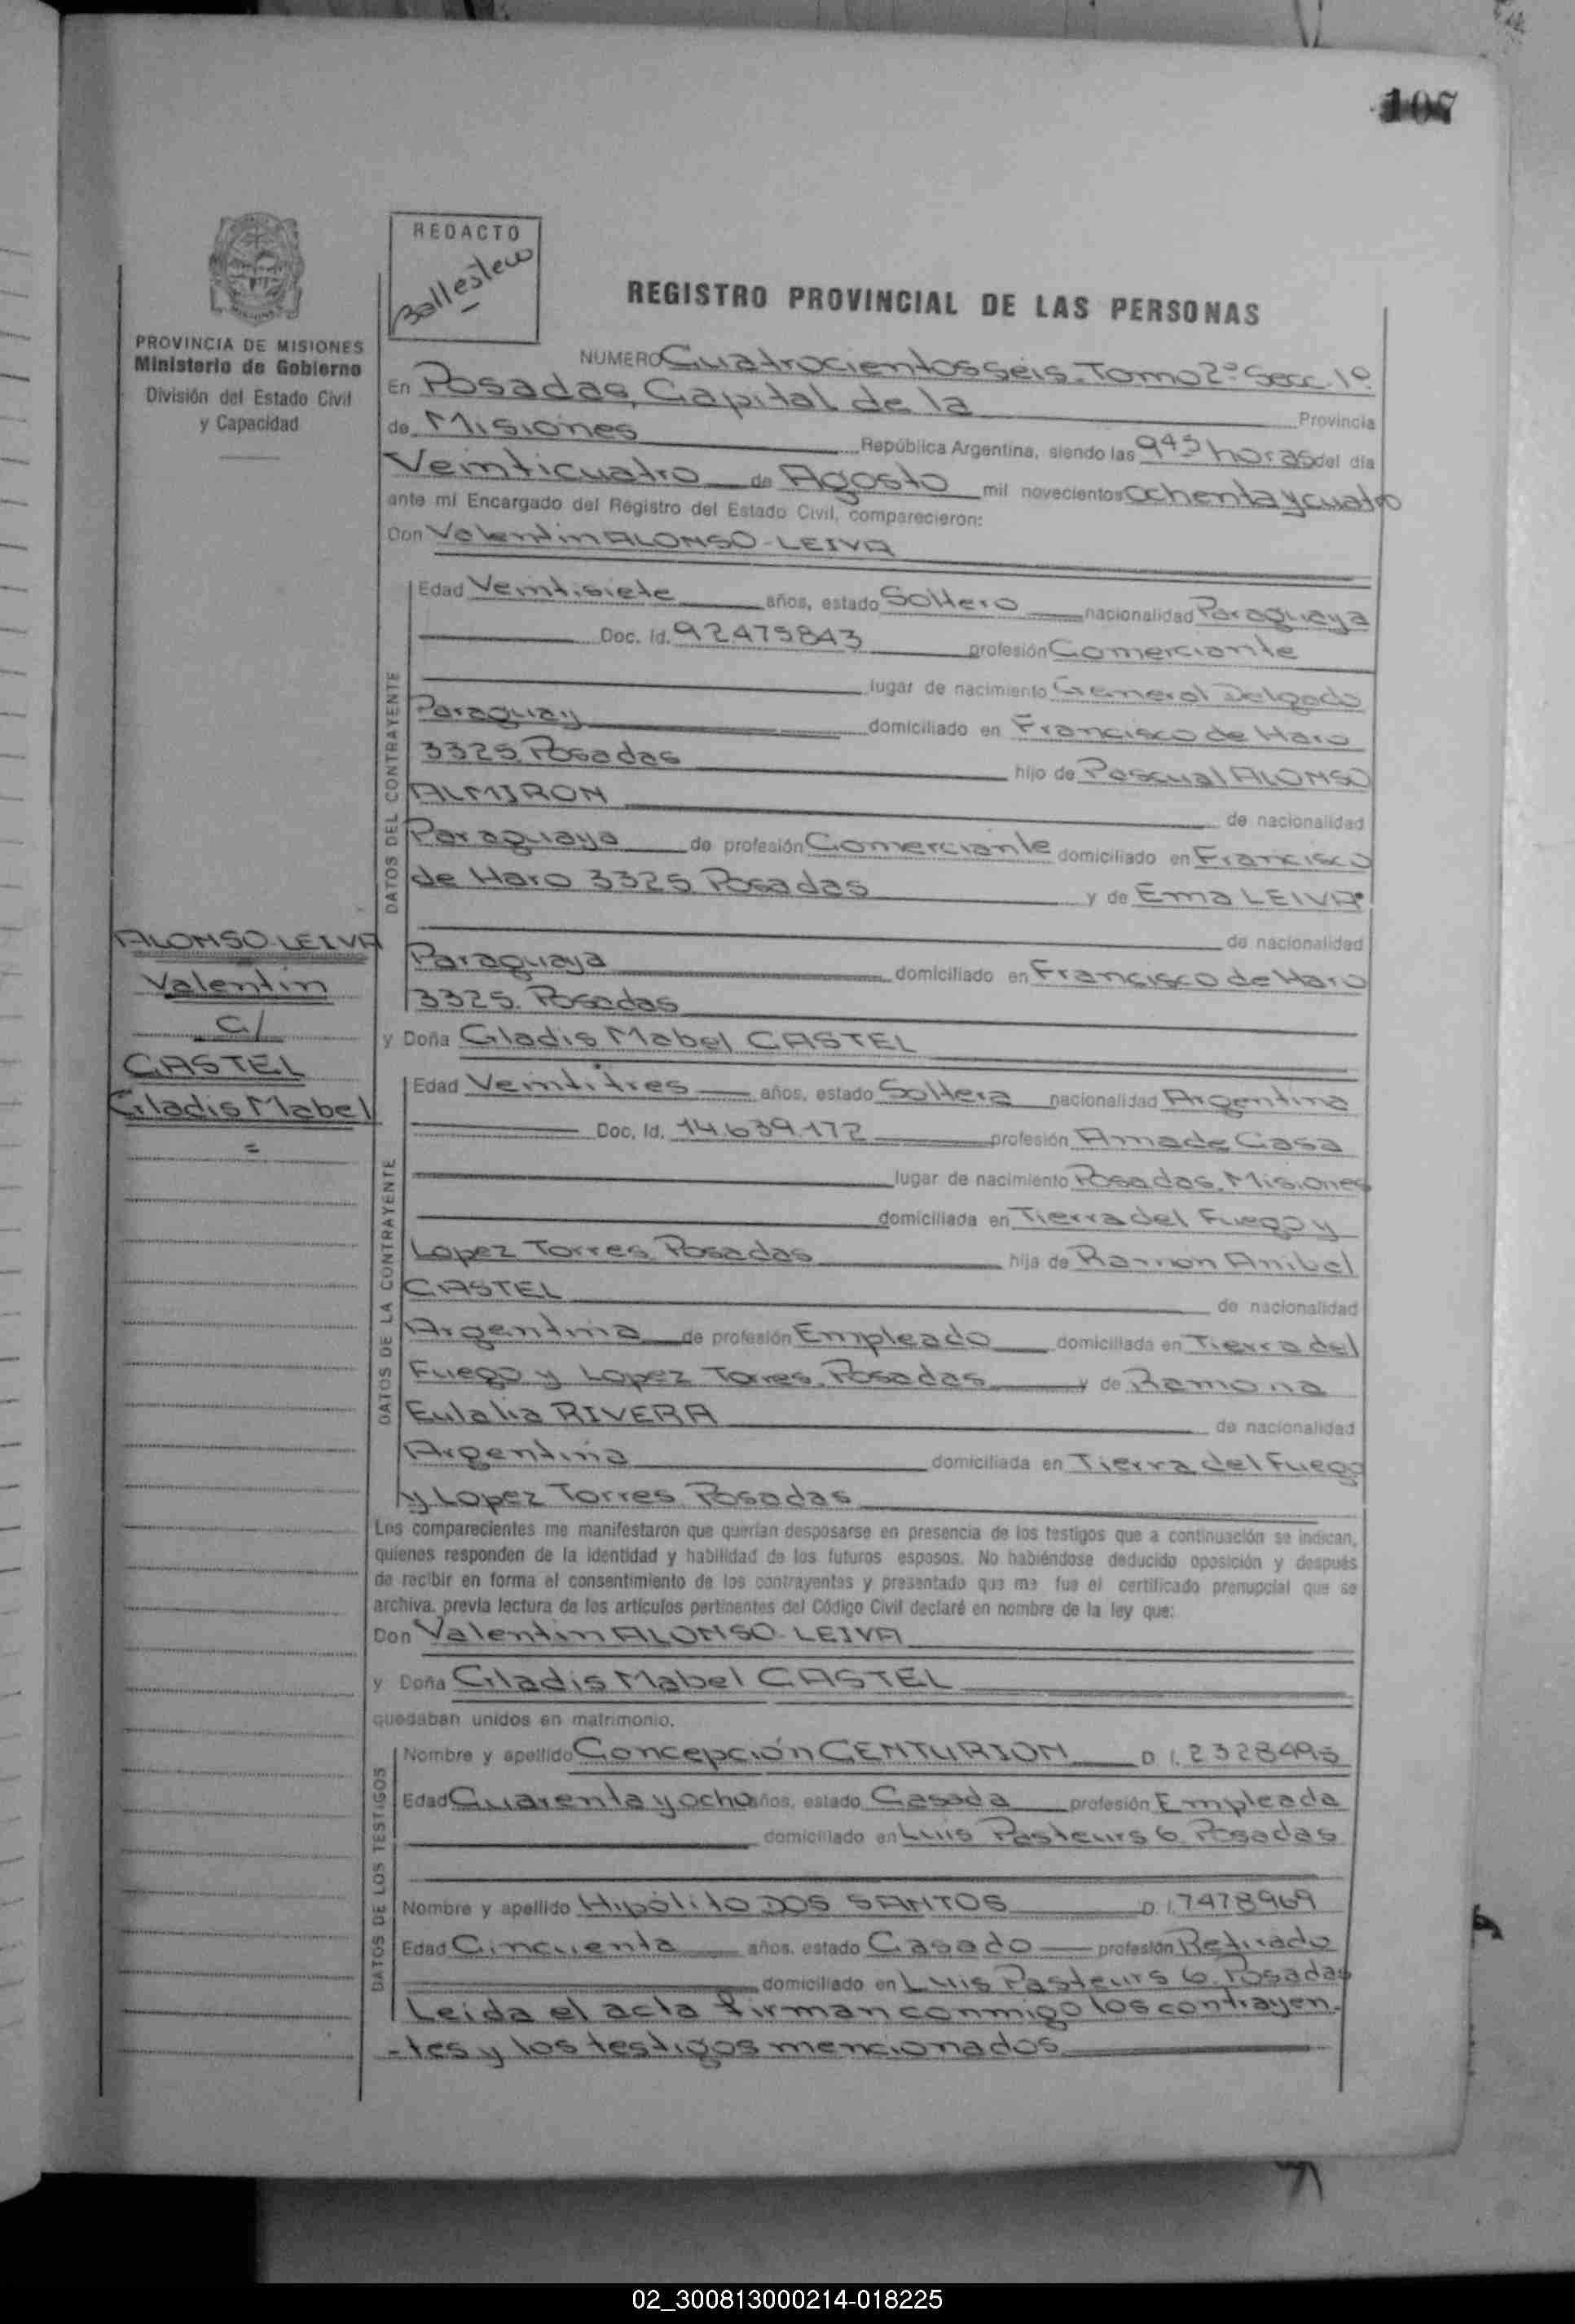 107
REDACTO
PROVINCIA DE MISIONES
Ministerio de Gobierno
División del Estado Civil
y Capacidad
REGISTRO PROVINCIAL DE LAS PERSONAS
NUMERO Cuatrocientos seis. Tomo 2º Secc. 1º
En Posadas, Capital de la Provincia
de Misiones República Argentina, siendo las 9 45 horas del día
Veinticuatro de Agosto mil novecientos ochenta y cuatro
ante mi Encargado del Registro del Estado Civil, comparecieron:
Don Valentin ALONSO-LEIVA
DATOS DEL CONTRAYENTE
Edad Veintisiete años, estado Soltero nacionalidad Paraguaya
Doc. Id. 92475843 profesión Comerciante
lugar de nacimiento General Delgado
Paraguay domiciliado en Francisco de Haro
3325 Posadas hijo de Pascual ALONSO
ALMIRON de nacionalidad
Paraguaya de profesión Comerciante domiciliado en Francisco
de Haro 3325 Posadas y de Ema LEIVA
de nacionalidad
Paraguaya domiciliado en Francisco de Haro
3325. Posadas
y Doña Gladis Mabel CASTEL
ALONSO-LEIVA
Valentin
C/
CASTEL
Gladis Mabel
=
DATOS DE LA CONTRAYENTE
Edad Veintitres años, estado Soltera nacionalidad Argentina
Doc. Id. 14.639.172 profesión Ama de Casa
lugar de nacimiento Posadas. Misiones
domiciliada en Tierra del Fuego y
Lopez Torres. Posadas hija de Ramon Anibal
CASTEL de nacionalidad
Argentina de profesión Empleado domiciliada en Tierra del
Fuego y Lopez Torres. Posadas y de Ramona
Eulalia RIVERA de nacionalidad
Argentina domiciliada en Tierra del Fuego
y Lopez Torres Posadas
Los comparecientes me manifestaron que querían desposarse en presencia de los testigos que a continuación se indican,
quienes responden de la identidad y habilidad de los futuros esposos. No habiéndose deducido oposición y después
de recibir en forma el consentimiento de los contrayentes y presentado que me fue el certificado prenupcial que se
archiva, previa lectura de los artículos pertinentes del Código Civil declaré en nombre de la ley que:
Don Valentin ALONSO-LEIVA
y Doña Gladis Mabel CASTEL
quedaban unidos en matrimonio.
DATOS DE LOS TESTIGOS
Nombre y apellido Concepción CENTURION D. I. 2328495
Edad Cuarenta y ocho años, estado Casada profesión Empleada
domiciliado en Luis Pasteurs 6. Posadas
Nombre y apellido Hipólito DOS SANTOS D. I. 7478969
Edad Cincuenta años, estado Casado profesión Retirado
domiciliado en Luis Pasteurs 6. Posadas
Leida el acta firman conmigo los contrayen-
-tes y los testigos mencionados
02_300813000214-018225